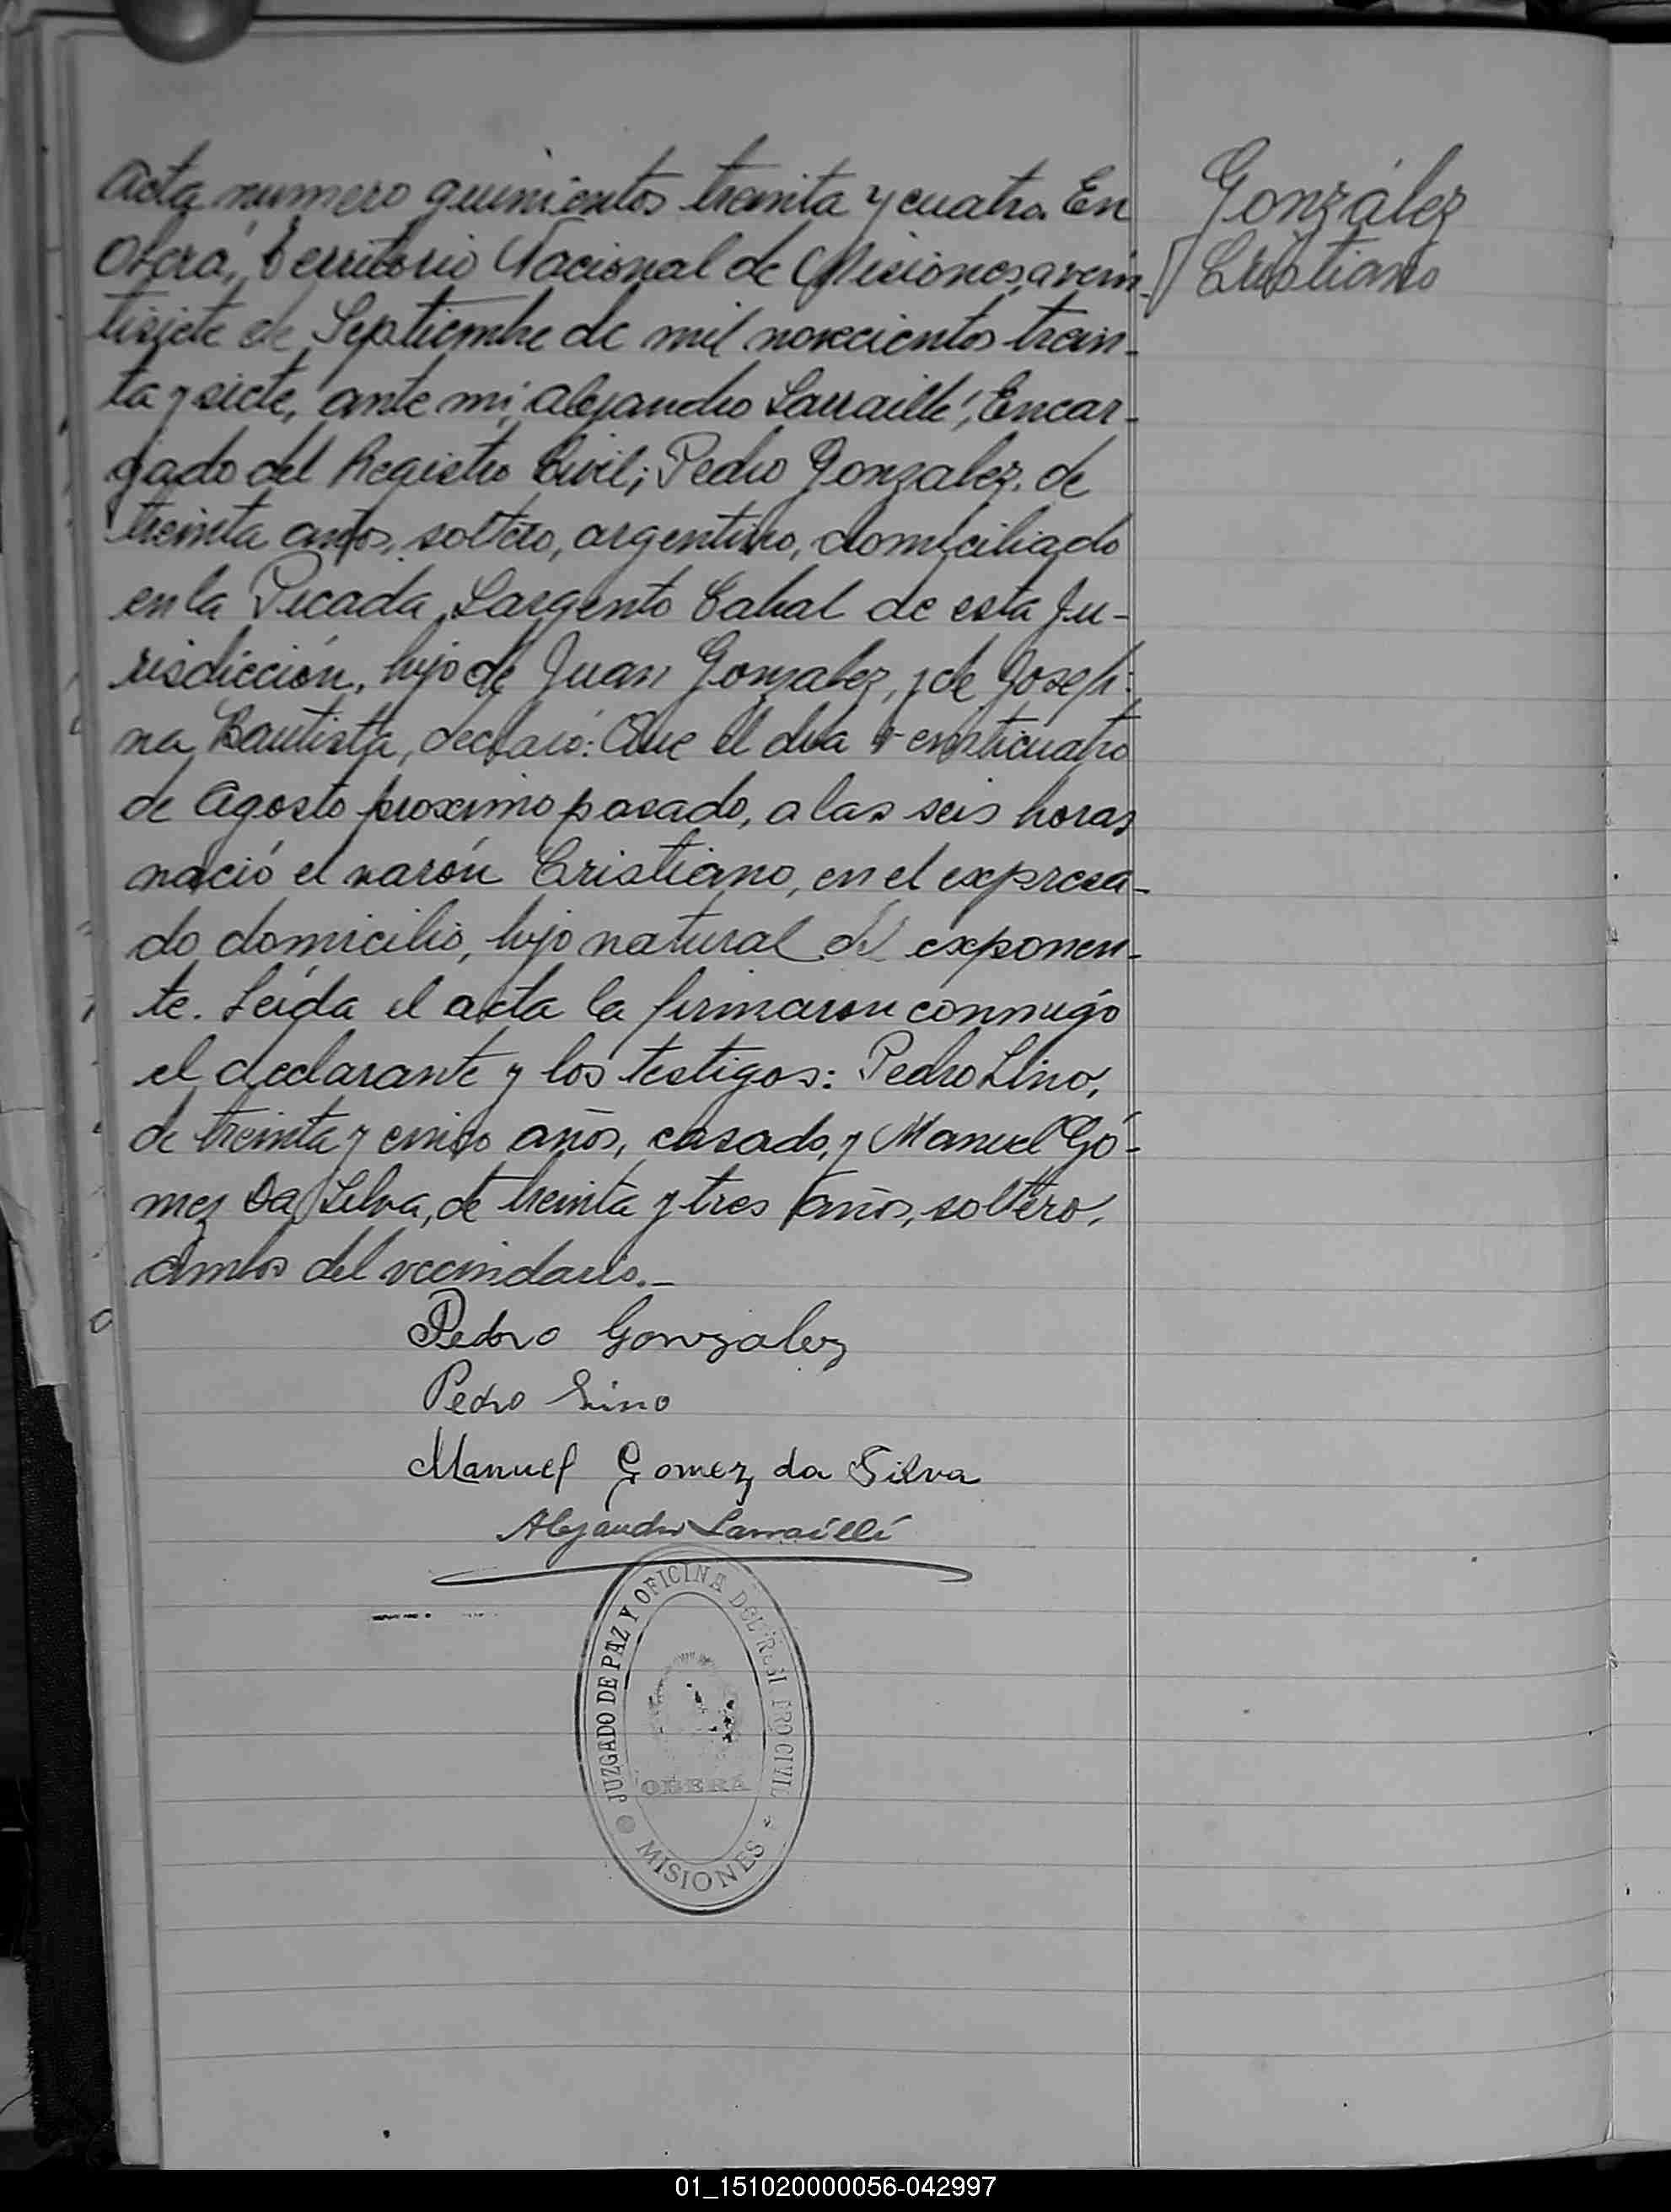 Acta numero quinientos treinta y cuatro. En
Oberá, Territorio Nacional de Misiones, a vein-
tisiete de Septiembre de mil novecientos trein-
ta y siete, ante mi, Alejandro Larraillé, Encar-
gado del Registro Civil; Pedro Gonzalez, de
treinta años, soltero, argentino, domiciliado
en la Picada Sargento Cabal de esta Ju-
risdicción, hijo de Juan Gonzalez, y de Josefi-
na Bautista, declaró: Que el dia veinticuatro
de Agosto proximo pasado, a las seis horas
nació el varón Cristiano, en el expresa-
do domicilio, hijo natural del exponen-
te. Leída el acta la firmaron conmigo
el declarante y los testigos: Pedro Lino,
de treinta y cinco años, casado, y Manuel Gó-
mez Da Silva, de treinta y tres años, soltero,
ambos del vecindario.-
González
Cristiano
Pedro Gonzalez
Pedro Lino
Manuel Gomez da Silva
Alejandro Larraillé
JUZGADO DE PAZ Y OFICINA DEL REGISTRO CIVIL
OBERA
MISIONES
01_151020000056-042997